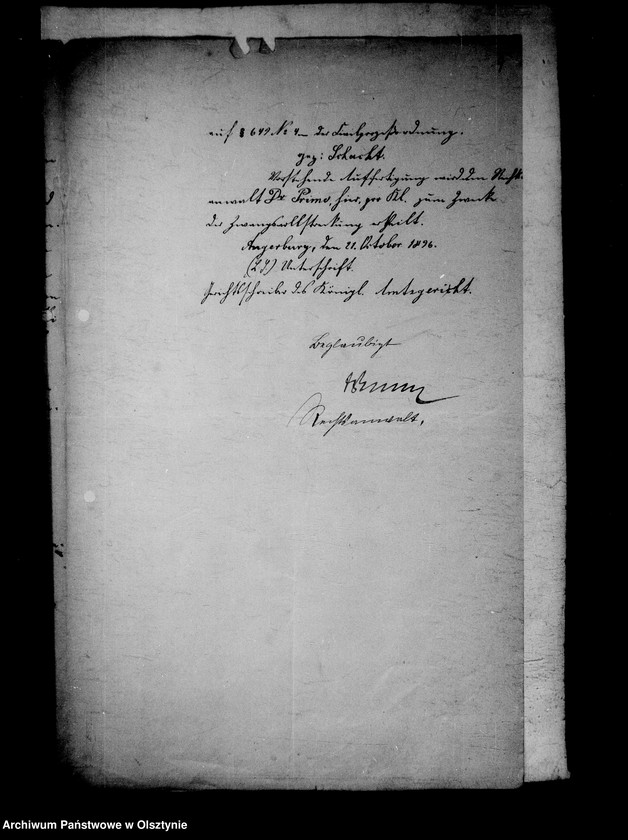 auf § 649 No 4 der Civilprozeßordnung.
gez: Schacht.
Vorstehende Ausfertigung wird dem Rechts-
anwalt Dr Primo, hier, pro Kl. zum Zwecke
der Zwangsvollstreckung ertheilt.
Angerburg, den 21. October 1896.
(LS) Unterschrift.
Gerichtsschreiber des Königl. Amtsgericht.
Beglaubigt
Rechtsanwalt.
Archiwum Państwowe w Olsztynie